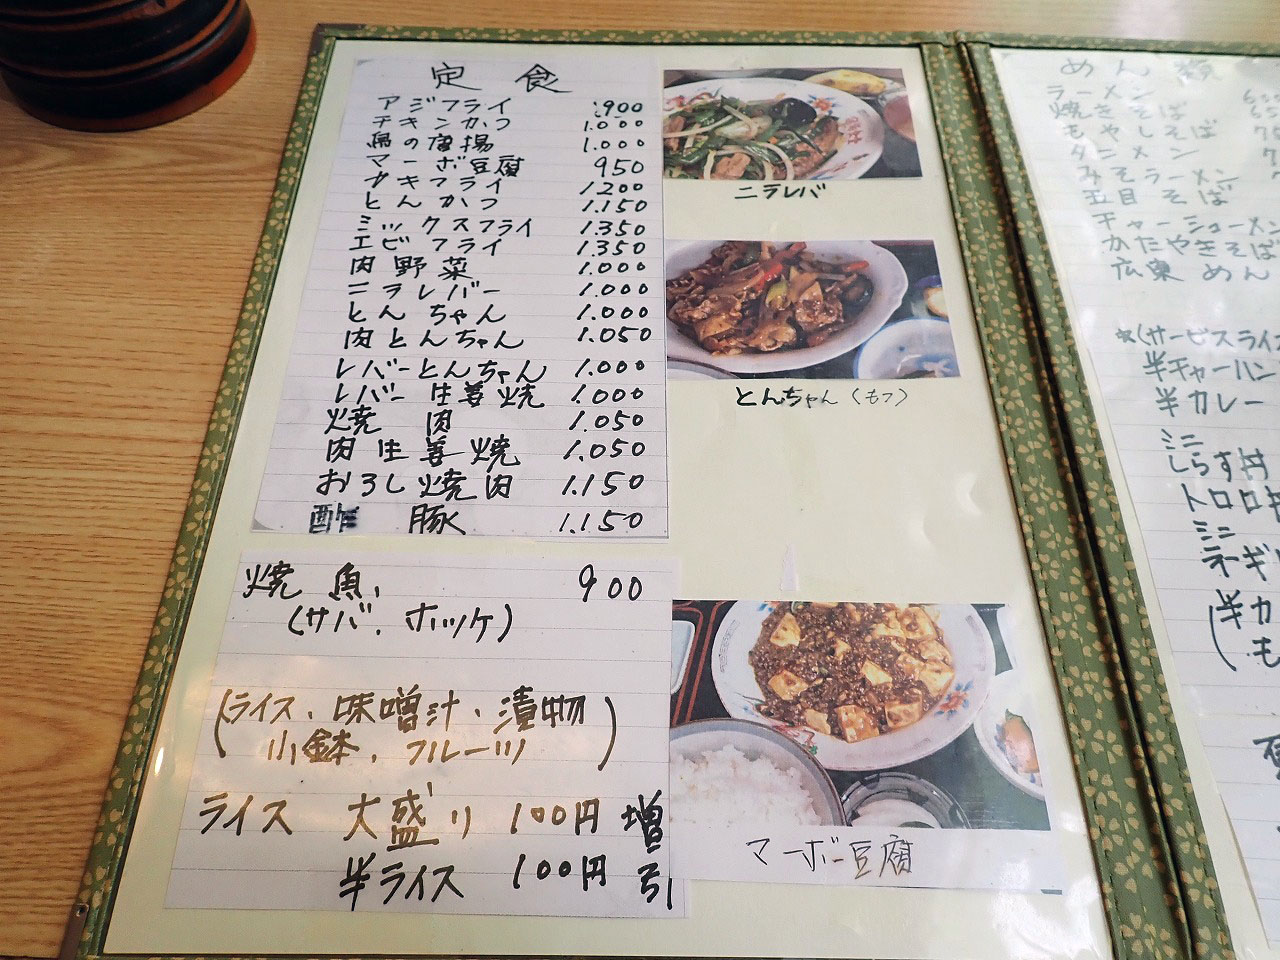 定食
アジフライ 900
チキンかつ 1.000
鳥の唐揚 1.000
マーボ豆腐 950
カキフライ 1200
とんかつ 1.150
ミックスフライ 1.350
エビフライ 1.350
肉野菜 1.000
ニラレバー 1.000
とんちゃん 1.000
肉とんちゃん 1.050
レバーとんちゃん 1.000
レバー生姜焼 1.000
焼肉 1.050
肉生姜焼 1.050
おろし焼肉 1.150
酢豚 1.150
焼魚 900
(サバ、ホッケ)
(ライス、味噌汁、漬物
小鉢、フルーツ)
ライス 大盛り 100円 増
半ライス 100円 引
ニラレバ
とんちゃん(もつ)
マーボー豆腐
めん類
ラーメン
焼きそば
もやしそば
タンメン
みそラーメン
五目そば
チャーシューメン
かたやきそば
広東めん
☆(サービスライス
半チャーハン
半カレー
ミニ
しらす丼
トロロ
ミニ
ネギ
(半カ
も